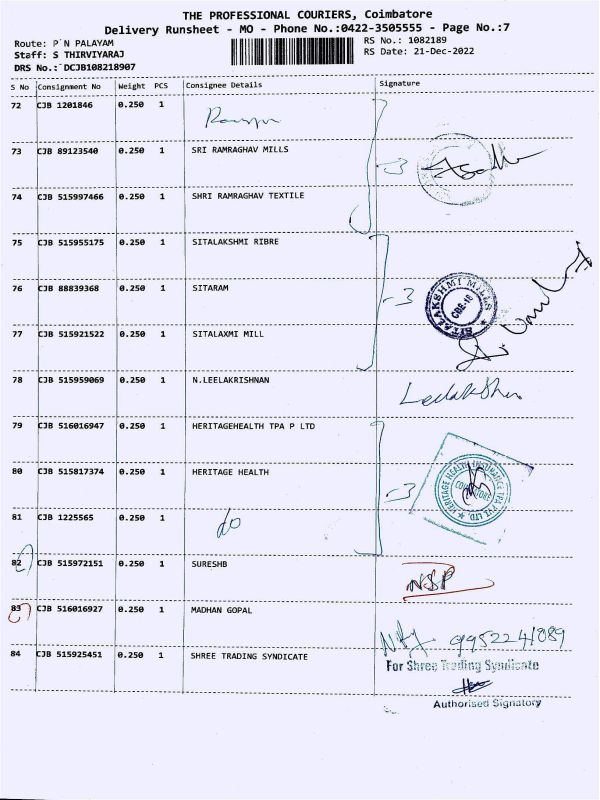 THE PROFESSIONAL COURIERS, Coimbatore
Delivery Runsheet - MO - Phone No.:0422-3505555 - Page No.:7
Route: P N PALAYAM
RS No.: 1082189
Staff: S THIRVIYARAJ
RS Date: 21-Dec-2022
DRS No.: DCJB108218907
S No Consignment No Weight PCS Consignee Details Signature
72 CJB 1201846 0.250 1
73 CJB 89123540 0.250 1 SRI RAMRAGHAV MILLS
3
74 CJB 515997466 0.250 1 SHRI RAMRAGHAV TEXTILE
75 CJB 515955175 0.250 1 SITALAKSHMI RIBRE
76 CJB 88839368 0.250 1 SITARAM
3 SITALAKSHMI MILLS CBE-18
77 CJB 515921522 0.250 1 SITALAXMI MILL
78 CJB 515959069 0.250 1 N.LEELAKRISHNAN
79 CJB 516016947 0.250 1 HERITAGEHEALTH TPA P LTD
80 CJB 515817374 0.250 1 HERITAGE HEALTH
3 HERITAGE HEALTH INSURANCE TPA PVT. LTD.
81 CJB 1225565 0.250 1 do
82 CJB 515972151 0.250 1 SURESHB
NSP
83 CJB 516016927 0.250 1 MADHAN GOPAL
9952241089
84 CJB 515925451 0.250 1 SHREE TRADING SYNDICATE
For Shree Trading Syndicate
Authorised Signatory